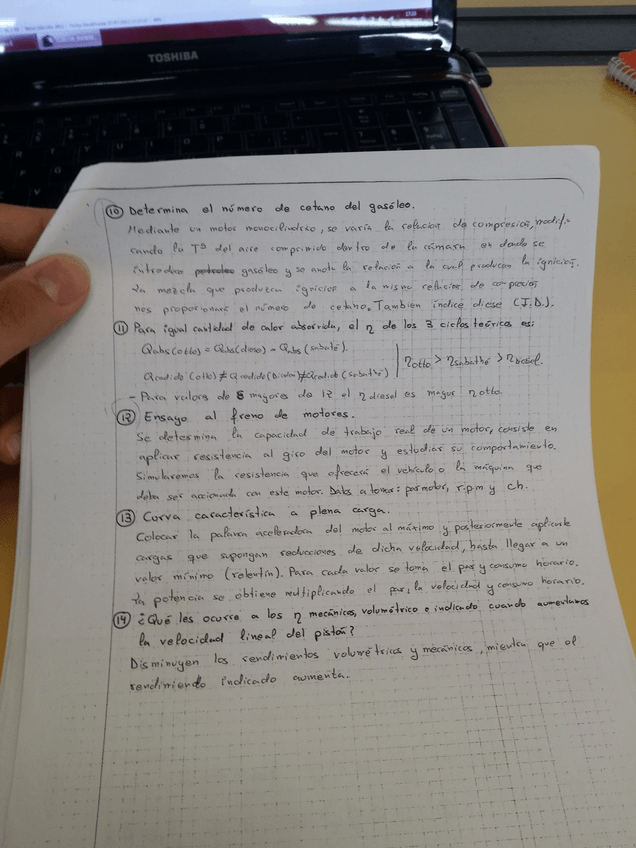 TOSHIBA
10 Determina el número de cetano del gasóleo.
Mediante un motor monocilíndrico, se varía la relación de compresión, modifi-
cando la Tª del aire comprimido dentro de la cámara en donde se
introduce gasóleo y se anota la relación a la cual produce la ignición.
La mezcla que produzca ignición a la misma relación de compresión
nos proporcionará el número de cetano. También índice diese (I.D.).
11 Para igual cantidad de calor absorvida, el η de los 3 ciclos teóricos es:
Qabs (otto) = Qabs (diesel) = Qabs (sabaté).
Qcedido (otto) ≠ Qcedido (Diesel) ≠ Qcedido (sabathe) | ηotto > ηsabathé > ηDiesel.
- Para valores de 8 mayores de 12 el η diesel es mayor η otto.
12 Ensayo al freno de motores.
Se determina la capacidad de trabajo real de un motor, consiste en
aplicar resistencia al giro del motor y estudiar su comportamiento.
Simularemos la resistencia que ofrecerá el vehículo o la máquina que
deba ser accionada con este motor. Datos a tomar: par motor, r.p.m y ch.
13 Curva característica a plena carga.
Colocar la palanca aceleradora del motor al máximo y posteriormente aplicarle
cargas que supongan reducciones de dicha velocidad, hasta llegar a un
valor mínimo (relentín). Para cada valor se toma el par y consumo horario.
La potencia se obtiene multiplicando el par, la velocidad y consumo horario.
14 ¿Qué les ocurre a los η mecánicos, volumétrico e indicado cuando aumentamos
la velocidad lineal del pistón?
Disminuyen los rendimientos volumétricos y mecánicos, mientra que el
rendimiento indicado aumenta.